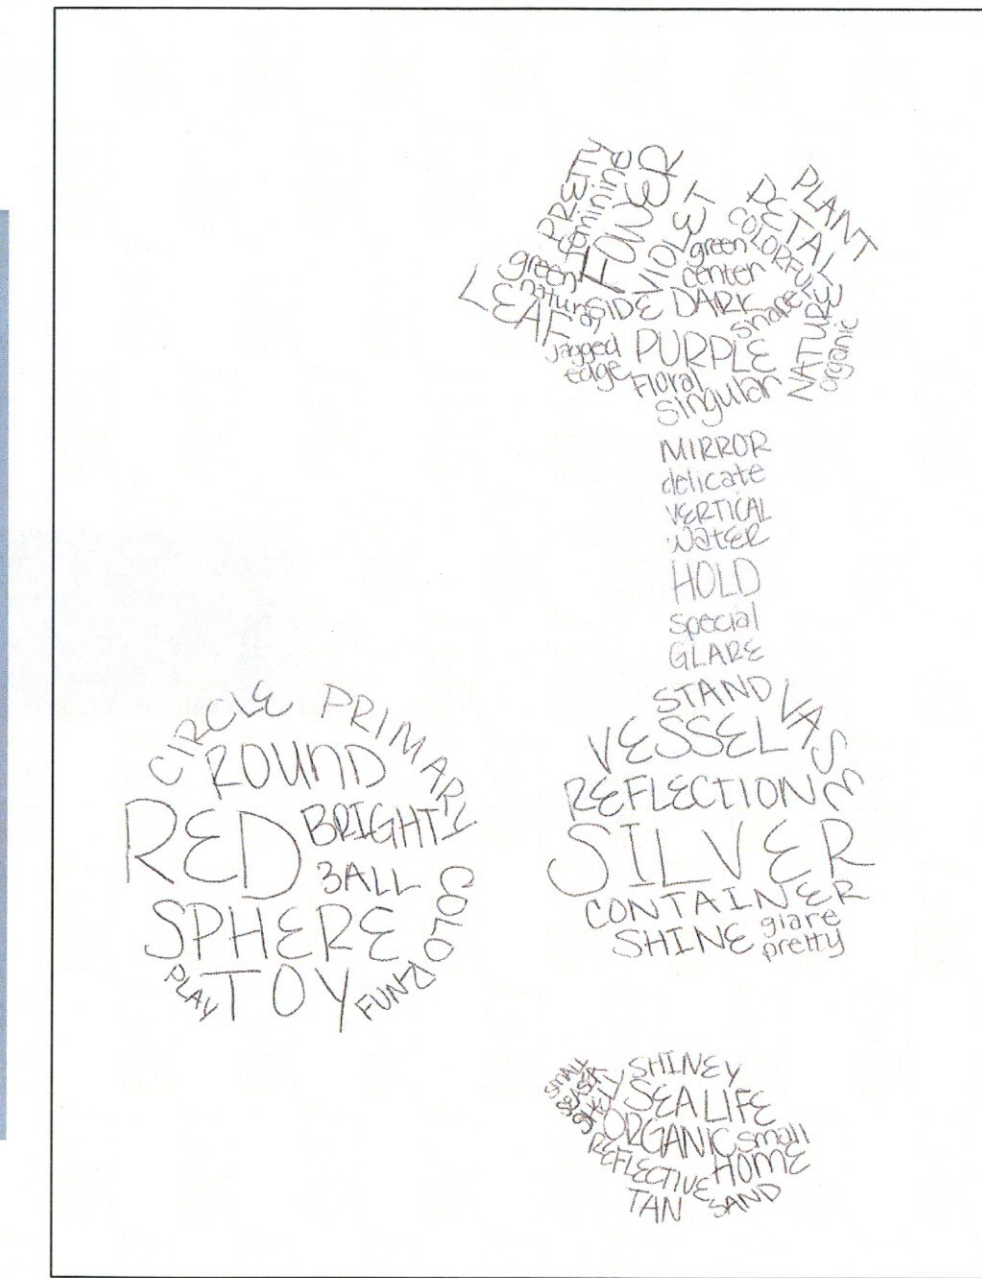 PRETTY
feminine
FLOWER
VIOLET
PLANT
PETAL
COLORFUL
green
center
green
LEAF
SIDE DARK
shape
NATURE
organic
jagged
edge
PURPLE
Floral
singular
MIRROR
delicate
VERTICAL
WatER
HOLD
special
GLARE
STAND
VASE
VESSEL
REFLECTION
SILVER
CONTAINER
SHINE
glare
pretty
CIRCLE PRIMARY
ROUND
RED
BRIGHT
BALL
COLOR
SPHERE
PLAY
TOY
FUN
SMALL
SHINEY
SEALIFE
ORGANIC
small
REFLECTIVE
HOME
TAN
SAND